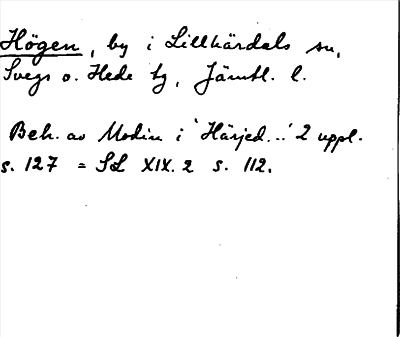 Högen, by i Lillhärdals sn,
Svegs o. Hede tg, Jämtl. l.
Beh. av Modin i 'Härjed...' 2 uppl.
s. 127 = SvL XIX. 2 s. 112.